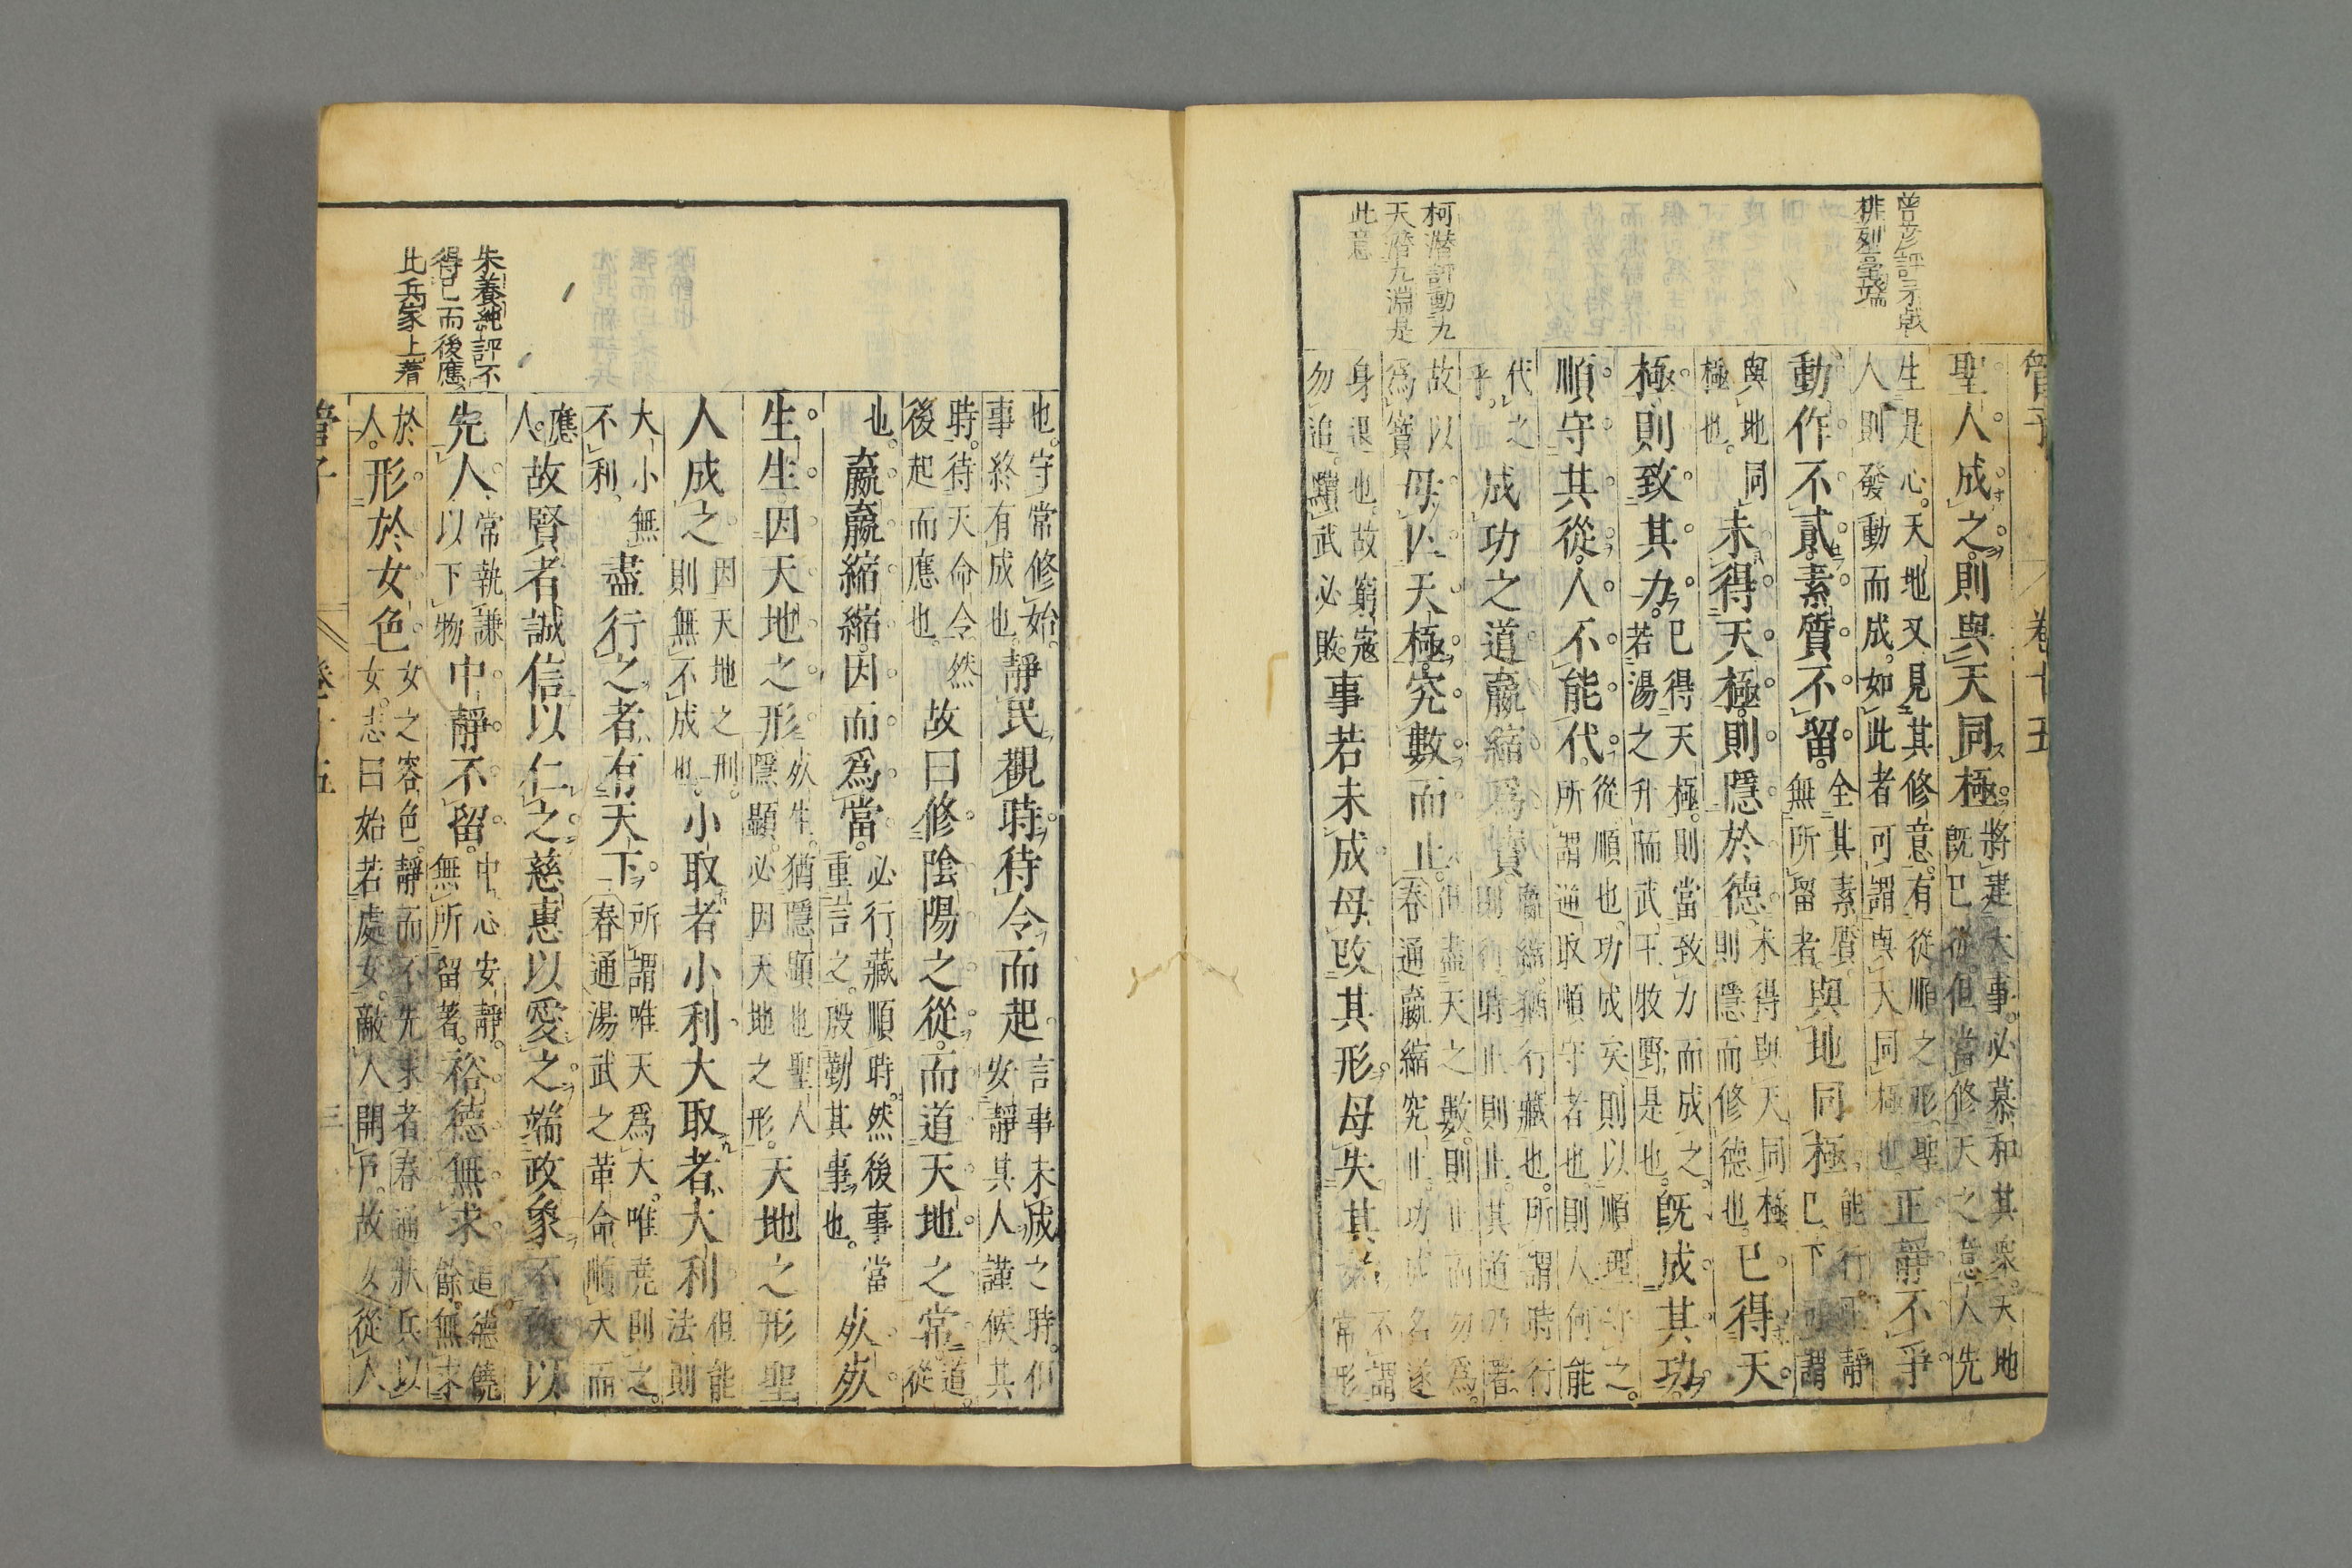 管子
卷十五
聖人成之則與天同極將建大事必慕和其衆天地
既已從但當修天之意人先
生是心天地又見其修意有從順之形聖正靜不爭
人則發動而成如此者可謂與大同極也
動作不貳素質不留全其素質與地同極能行正靜
無所留者
與地同未得天極則隱於德未得與天同極已得天
極也則隱而修德也
極則致其力已得天極則當致力而成之既成其功
若湯之升陑武王牧野是也
順守其從人不能代從順也功成矣則以順理守之
所謂逆取順守者也則人何能
代之成功之道嬴縮爲寶嬴縮猶行藏也所謂時行
乎則行時止則止其道乃著
故以母亾天極究數而止但盡天之數則止而勿爲
爲寶春通嬴縮究止功成名遂
身退也故窮寇事若未成母改其形母失其
勿追蹋武必敗常形
曾彥評
排列
柯潛評動九
天潛九淵是
此意
也守常修始靜民觀時待令而起言事未成之時但
事終有成也安靜其人謹候其
時待天命令然故曰修陰陽之從而道天地之常道
後起而應也從
也嬴嬴縮縮因而爲當必行藏順時然後事當㱙㱙
重言之殷勤其事也
生生因天地之形㱙生猶隱顯也聖人天地之形聖
隱顯必因天地之形
人成之因天地之刑小取者小利大取者大利但能
則無不成也法則
大小無盡行之者有天下所謂唯天爲大唯堯則之
不利春通湯武之革命順天而
應故賢者誠信以仁之慈惠以愛之端政象不敢以
人
先人常執謙中靜不留中心安靜裕德無求道德饒
以下物無所留著餘無求
於形於女色女之容色靜而不先求者春通狀兵以
人女志曰始若處女敵人開戶故女從人
朱養純評不
得已而後應
此兵家上著
管子
卷十五
三